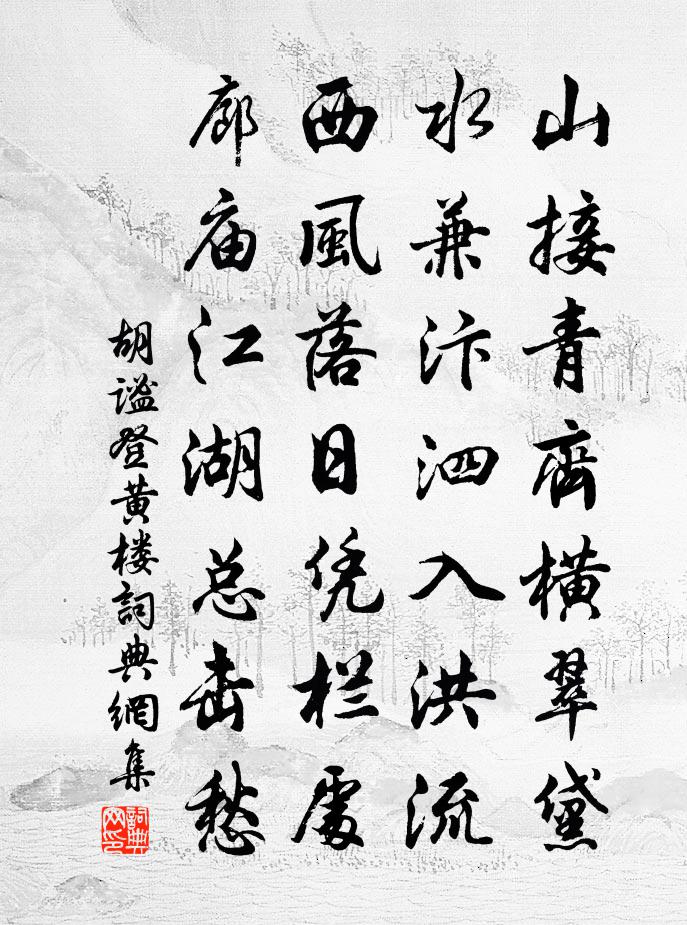 山接青齊橫翠黛
水兼汴泗入洪流
西風落日凭栏處
廊庙江湖总击愁
胡谧登黄楼詞典網集
詞典網印